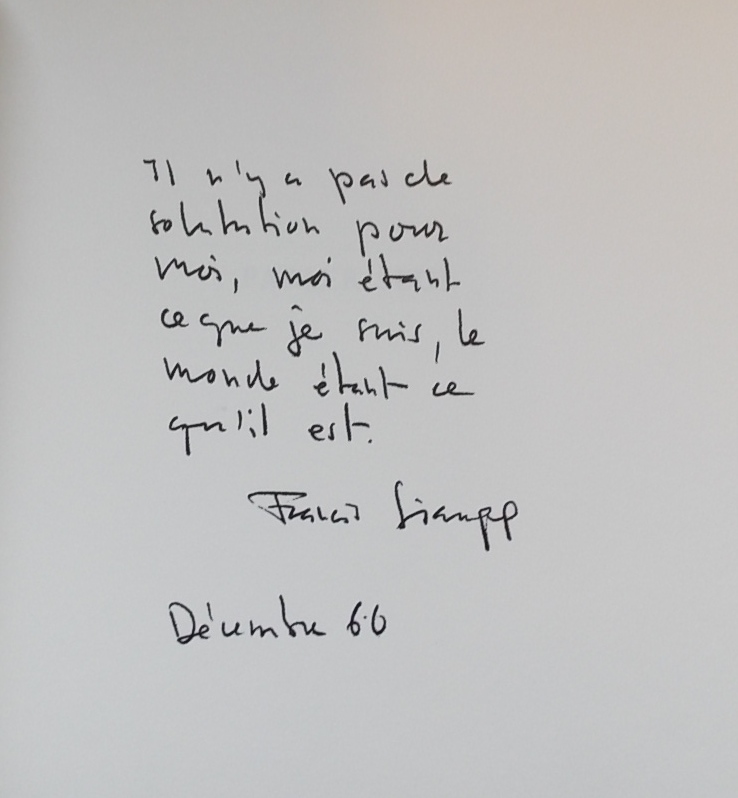 Il n'y a pas de
solution pour
moi, moi étant
ce que je suis, le
monde étant ce
qu'il est.
Francis Giauque
Décembre 60